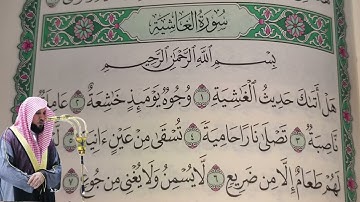 سُورَةُ الغَاشِيَةِ
بِسْمِ ٱللَّهِ ٱلرَّحْمَٰنِ ٱلرَّحِيمِ
هَلْ أَتَىٰكَ حَدِيثُ ٱلْغَٰشِيَةِ ١ وُجُوهٌ يَوْمَئِذٍ خَٰشِعَةٌ ٢ عَامِلَةٌ
نَّاصِبَةٌ ٣ تَصْلَىٰ نَارًا حَامِيَةً ٤ تُسْقَىٰ مِنْ عَيْنٍ ءَانِيَةٍ
لَهُمْ طَعَامٌ إِلَّا مِن ضَرِيعٍ ٦ لَّا يُسْمِنُ وَلَا يُغْنِى مِن جُوعٍ ٧